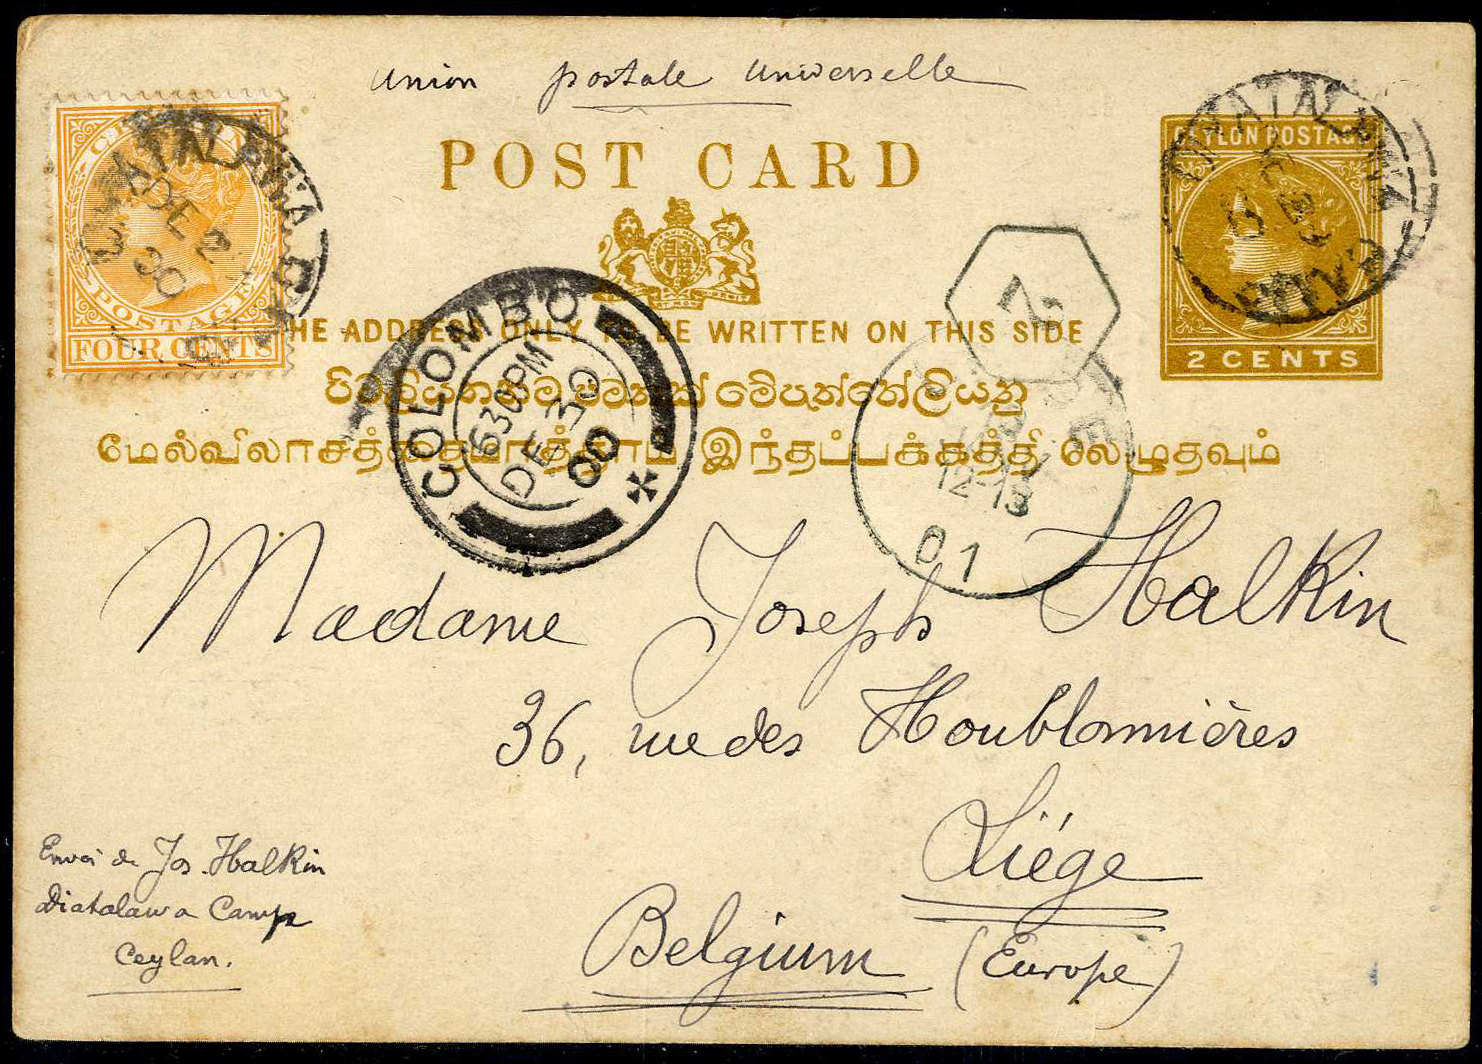 Union postale Universelle
POST CARD
CEYLON POSTAGE
2 CENTS
POSTAGE
FOUR CENTS
DIYATALAWA
DE 2
00
DIYATALAWA
THE ADDRESS ONLY TO BE WRITTEN ON THIS SIDE
COLOMBO
630PM
DE 30
00
මේපැත්තේලියනු
மேல்விலாசத்தைமாத்திரம் இந்தப்பக்கத்தி லெழுதவும்
12-13
01
Madame Joseph Halkin
36, rue des Houblonnières
Liége
Belgium (Europe)
Envoi de Jos. Halkin
Diatalawa Camp
Ceylan.